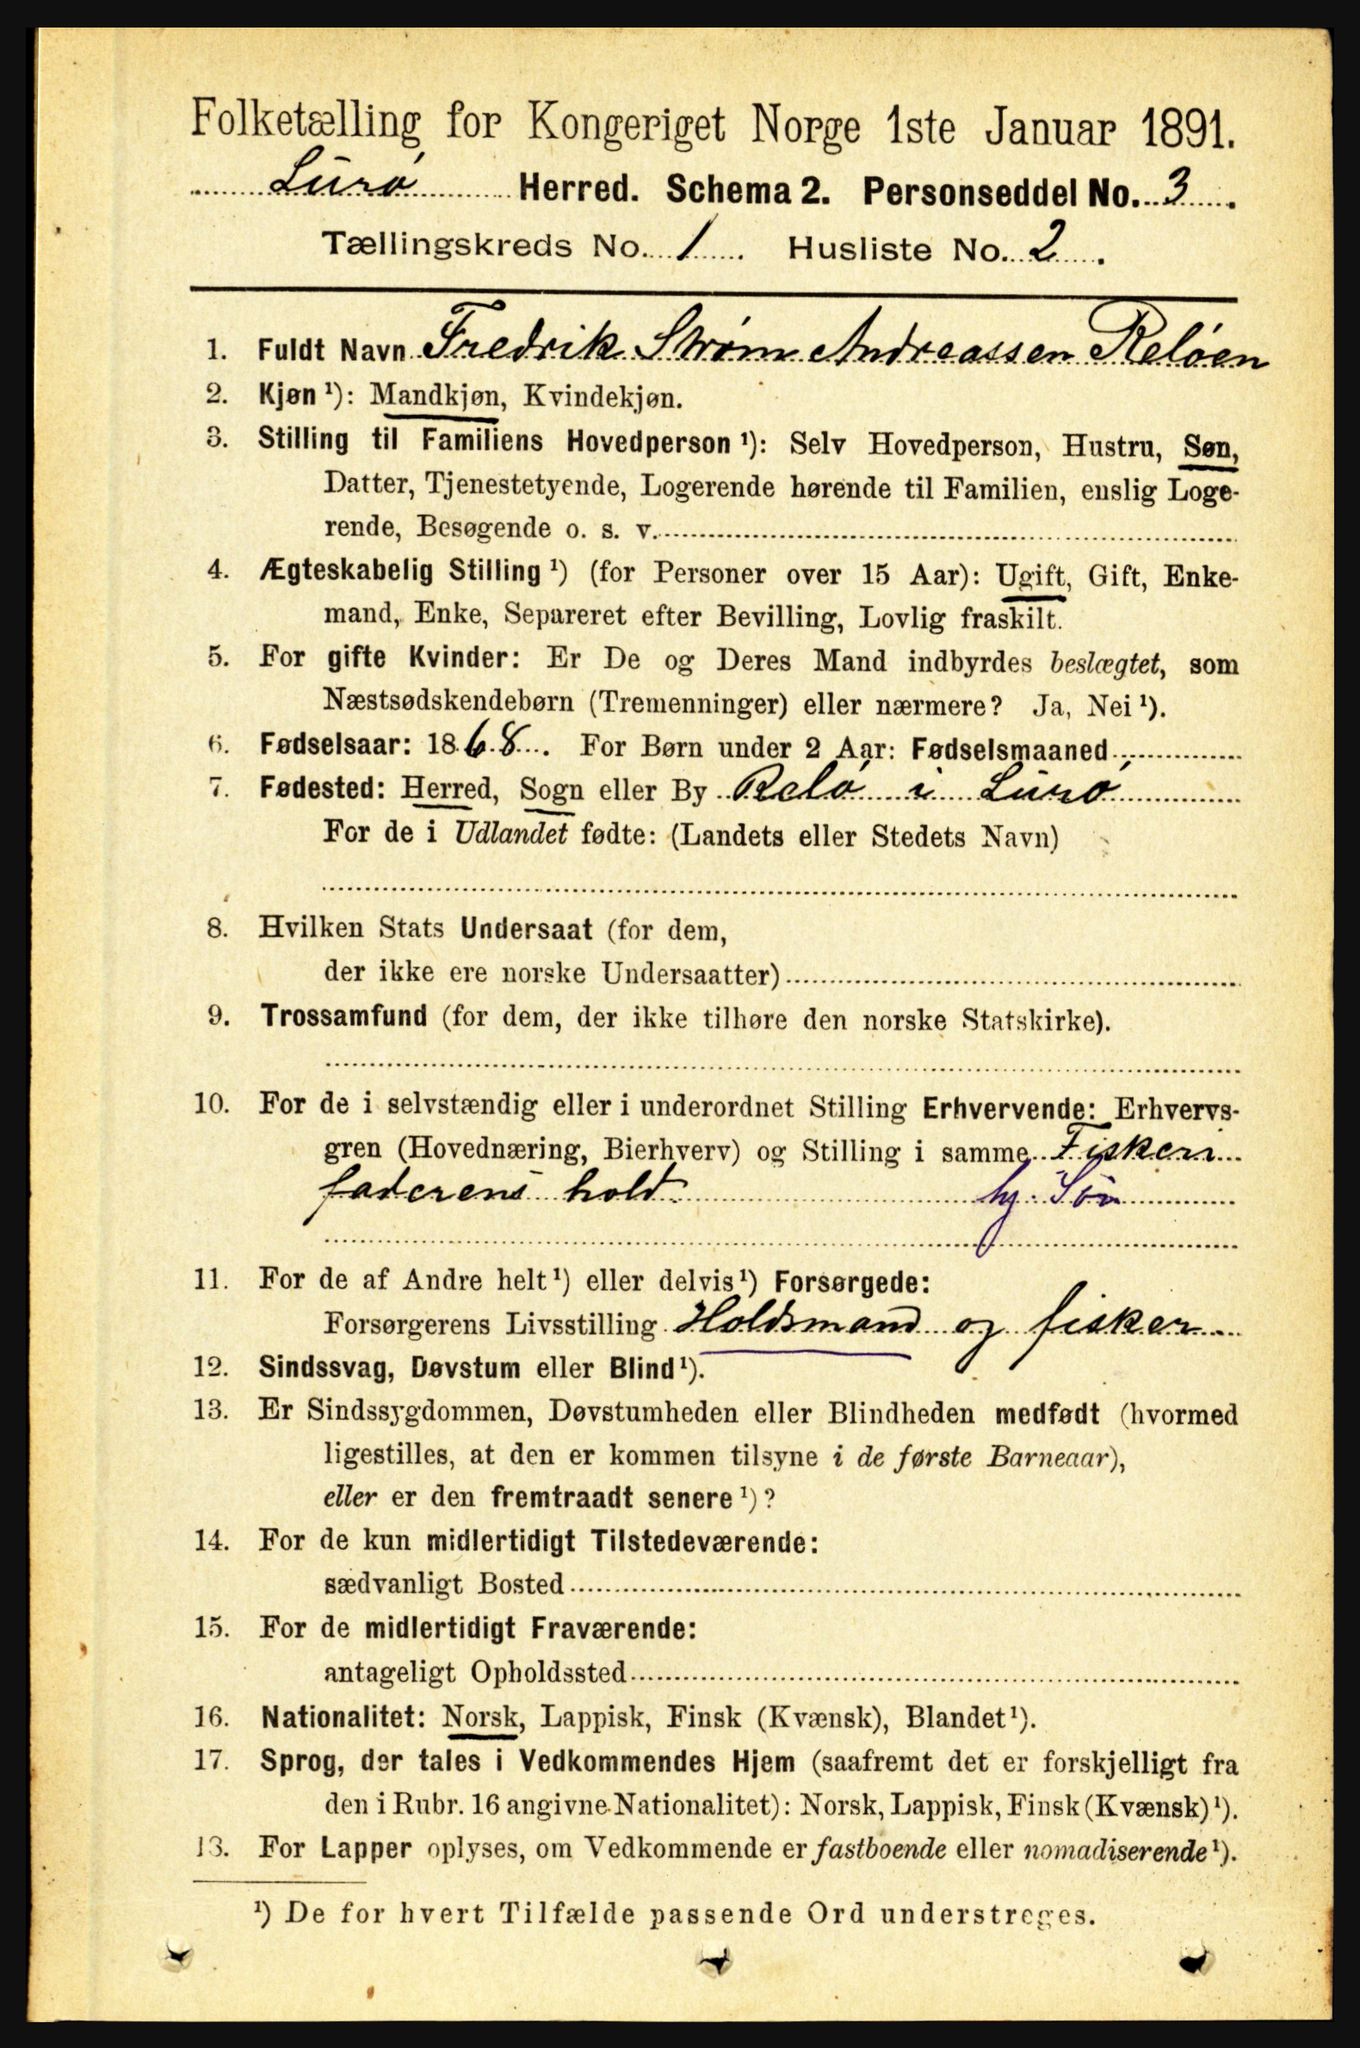 Folketælling for Kongeriget Norge 1ste Januar 1891.
Lurø Herred. Schema 2. Personseddel No. 3.
Tællingskreds No. 1. Husliste No. 2.
1. Fuldt Navn Fredrik Strøm Andreassen Reløen
2. Kjøn ¹): Mandkjøn, Kvindekjøn.
3. Stilling til Familiens Hovedperson ¹): Selv Hovedperson, Hustru, Søn,
Datter, Tjenestetyende, Logerende hørende til Familien, enslig Loge-
rende, Besøgende o. s. v.
4. Ægteskabelig Stilling ¹) (for Personer over 15 Aar): Ugift, Gift, Enke-
mand, Enke, Separeret efter Bevilling, Lovlig fraskilt.
5. For gifte Kvinder: Er De og Deres Mand indbyrdes beslægtet, som
Næstsødskendebørn (Tremenninger) eller nærmere? Ja, Nei ¹).
6. Fødselsaar: 1868. For Børn under 2 Aar: Fødselsmaaned
7. Fødested: Herred, Sogn eller By Relø i Lurø
For de i Udlandet fødte: (Landets eller Stedets Navn)
8. Hvilken Stats Undersaat (for dem,
der ikke ere norske Undersaatter)
9. Trossamfund (for dem, der ikke tilhøre den norske Statskirke).
10. For de i selvstændig eller i underordnet Stilling Erhvervende: Erhvervs-
gren (Hovednæring, Bierhverv) og Stilling i samme Fisker i
faderens hold. hj. Søn
11. For de af Andre helt ¹) eller delvis ¹) Forsørgede:
Forsørgerens Livsstilling Holdsmand og fisker
12. Sindssvag, Døvstum eller Blind ¹).
13. Er Sindssygdommen, Døvstumheden eller Blindheden medfødt (hvormed
ligestilles, at den er kommen tilsyne i de første Barneaar),
eller er den fremtraadt senere ¹)?
14. For de kun midlertidigt Tilstedeværende:
sædvanligt Bosted
15. For de midlertidigt Fraværende:
antageligt Opholdssted
16. Nationalitet: Norsk, Lappisk, Finsk (Kvænsk), Blandet ¹).
17. Sprog, der tales i Vedkommendes Hjem (saafremt det er forskjelligt fra
den i Rubr. 16 angivne Nationalitet): Norsk, Lappisk, Finsk (Kvænsk) ¹).
13. For Lapper oplyses, om Vedkommende er fastboende eller nomadiserende ¹).
¹) De for hvert Tilfælde passende Ord understreges.